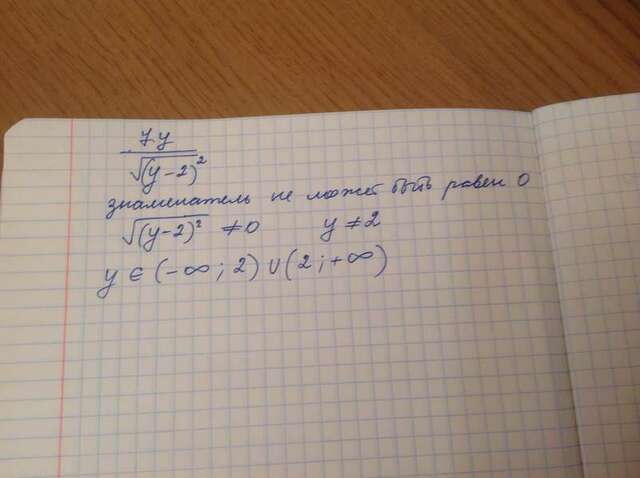 7y
√(y-2)²
знаменатель не может быть равен 0
√(y-2)² ≠0 y≠2
y ∈ (-∞; 2) ∪ (2; +∞)